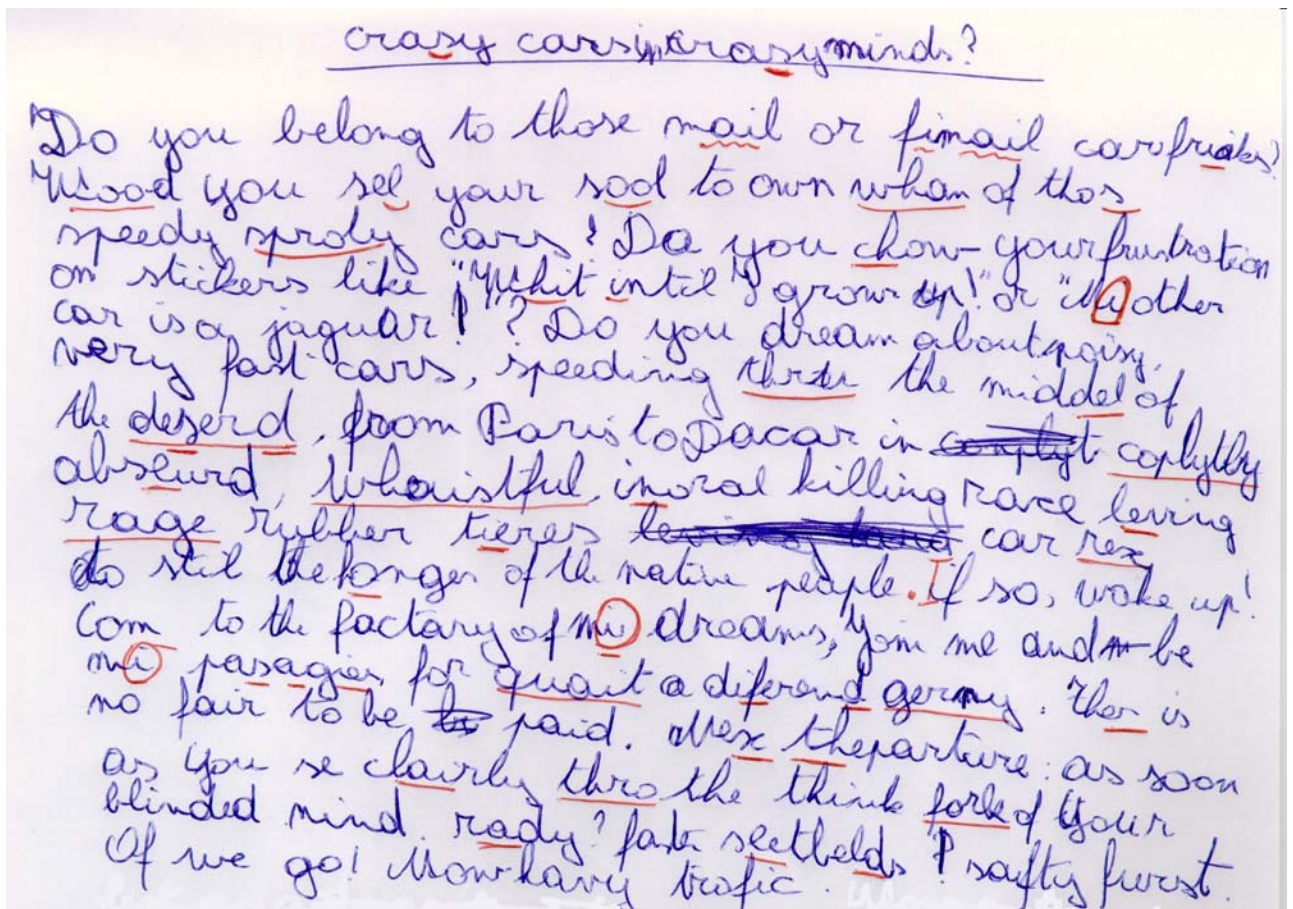 crasy cars in crasy minds?
Do you belong to those mail or fimail carfriaks?
Wood you sel your sool to own whan of thos
speedy sproty cars? Do you chow your frustration
on stickers like "Whit intil I grow up!" or "Mi other
car is a jaguar!"? Do you dream about noisy,
very fast cars, speeding thru the middel of
the deserd, from Paris to Dacar in coplytly
abseurd, whaistful, imoral killing race leving
rage rubber tieres car rex
to stil the honger of the native people. If so, wake up!
Com to the factary of mi dreams, Yoin me and be
mi pasagier for quait a diferend gerny. Ther is
no fair to be paid. Nex theparture: as soon
as you se clairly thro the think fork of your
blinded mind. rady? faste seetbelds? safty furst.
Of we go! Mow havy trofic.